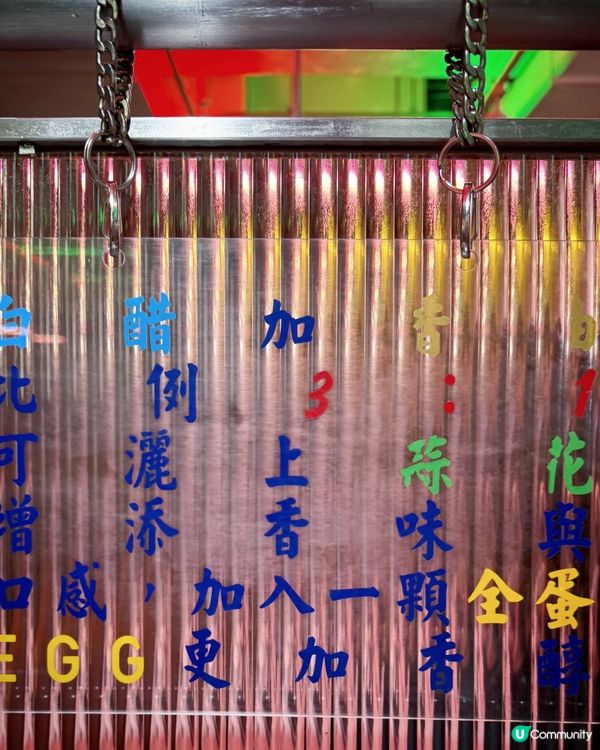 白醋加香
比例3:1
可灑上蒜花
增添香味與
口感，加入一顆全蛋
EGG更加香醇
Community